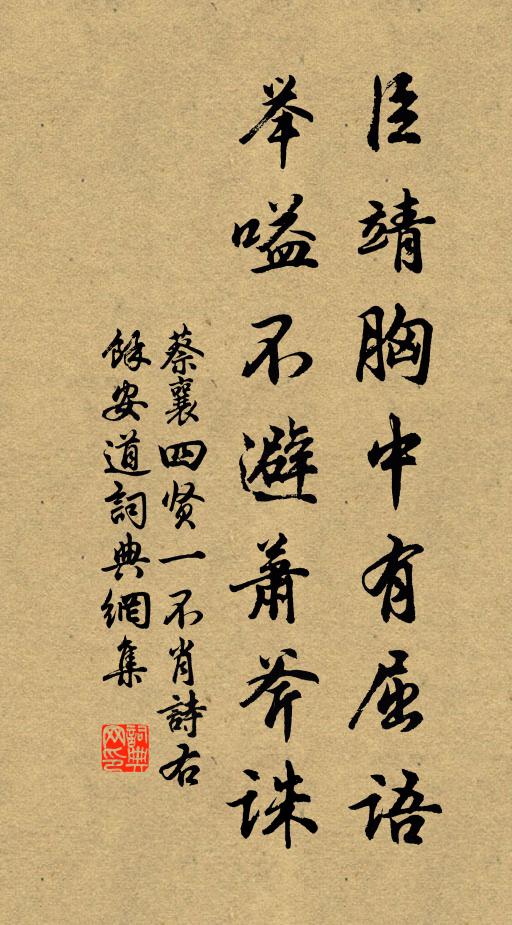 臣靖胸中有屈语
举嗌不避萧斧诛
蔡襄四贤一不肖詩右
餘安道詞典網集
詞典
网印